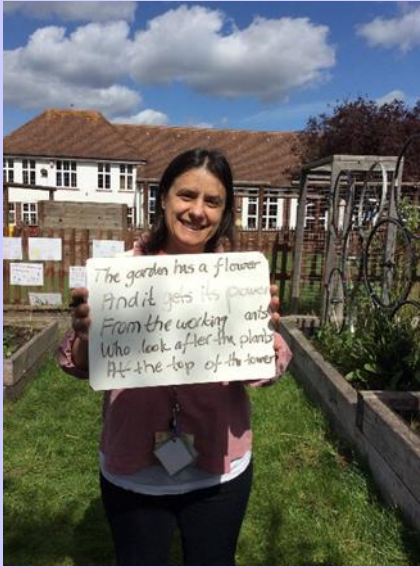 The garden has a flower
And it gets its power
From the working ants
Who look after the plants
At the top of the tower